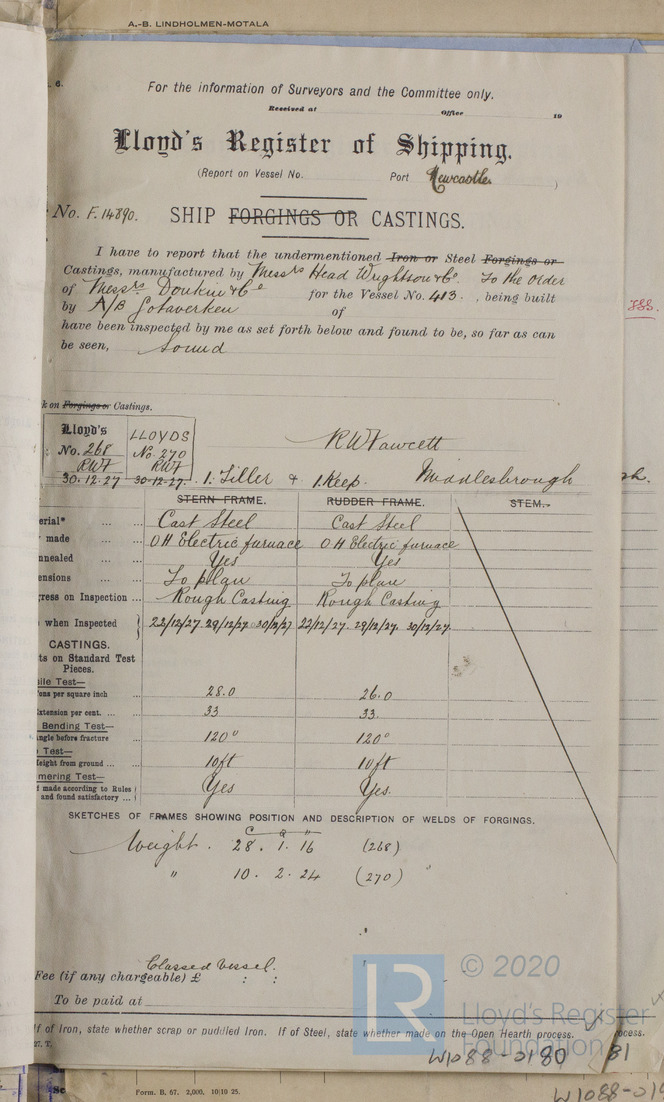 A.-B. LINDHOLMEN-MOTALA
6.
For the information of Surveyors and the Committee only.
Received at Office 19
Lloyd's Register of Shipping.
(Report on Vessel No. Port Newcastle )
No. F.14890. SHIP FORGINGS OR CASTINGS.
I have to report that the undermentioned Iron or Steel Forgings or
Castings, manufactured by Messrs Head Wrightson & Co. To the order
of Messrs Donkin & Co for the Vessel No. 413. , being built
by A/B Gotaverken of
have been inspected by me as set forth below and found to be, so far as can
be seen, Sound
k on Forgings or Castings.
Lloyd's LLOYDS
No. 268 No. 270
RWF RWF
30.12.27 30-12-27.
RW Fawcett
1. Tiller & 1. Keep. Middlesbrough
STERN FRAME. RUDDER FRAME. STEM.
erial* ... ... Cast Steel Cast Steel
made ... ... OH Electric furnace OH Electric furnace
nnealed ... ... Yes Yes
ensions ... ... To plan To plan
gress on Inspection ... Rough Casting Rough Casting
when Inspected 22/12/27. 29/12/27. 30/12/27 22/12/27. 29/12/27. 30/12/27.
CASTINGS.
ts on Standard Test
Pieces.
sile Test—
ons per square inch 28.0 26.0
xtension per cent. ... ... 33 33.
Bending Test—
ngle before fracture 120° 120°
Test—
eight from ground ... ... 10ft 10ft
mering Test—
made according to Rules
and found satisfactory ... Yes Yes.
SKETCHES OF FRAMES SHOWING POSITION AND DESCRIPTION OF WELDS OF FORGINGS.
C Q "
Weight. 28. 1. 16 (268)
" 10. 2. 24 (270) "
Classed Vessel.
Fee (if any chargeable) £ : :
To be paid at
If of Iron, state whether scrap or puddled Iron. If of Steel, state whether made on the Open Hearth process.
ocess.
27. T.
© 2020
LR
Lloyd's Register
Foundation
W1088-0180
81
Form. B, 67. 2,000, 10|10 25.